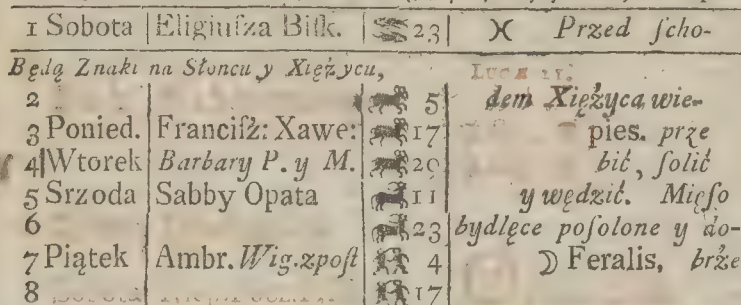 1 Sobota Eligiuſza Biſk. 23 ♓ Przed ſcho-
Będą Znaki na Słoncu y Xiężycu, Lucæ 21.
2 5 dem Xiężyca wie-
3 Ponied. Franciſz: Xawe: 17 pies. prze
4 Wtorek Barbary P. y M. 29 bić, ſolić
5 Srzoda Sabby Opata 11 y wędzić. Mięſo
6 23 bydlęce poſolone y do-
7 Piątek Ambr. Wig. z poſt 4 ☽ Feralis, brże
8 17